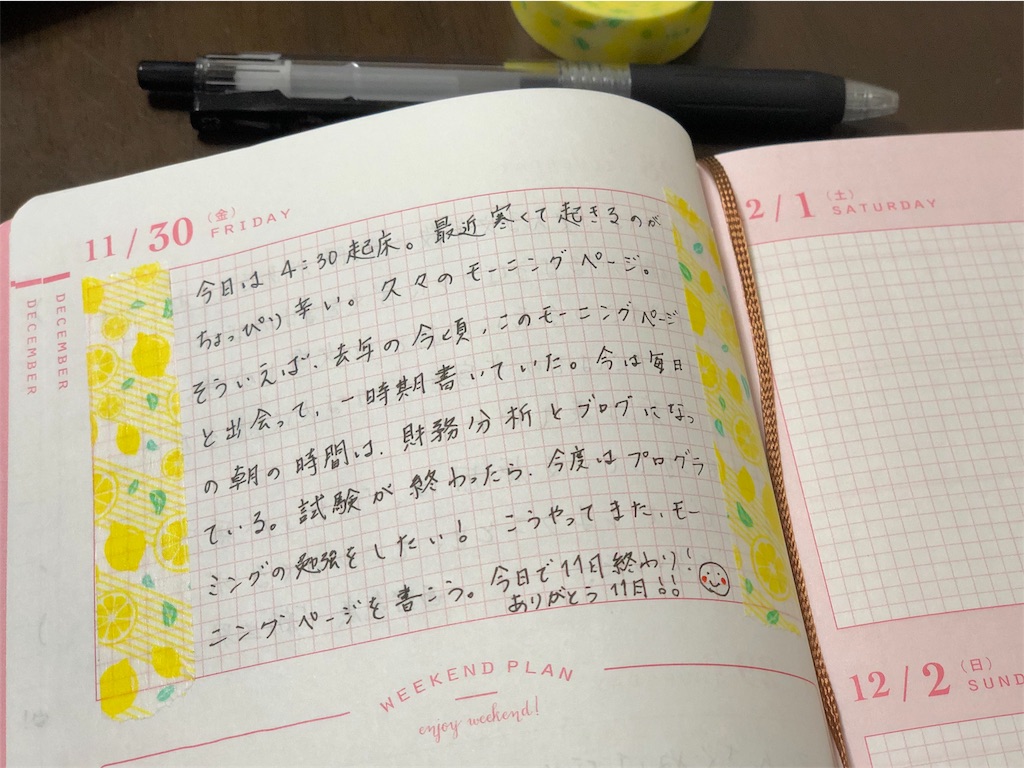 11/30 (金) FRIDAY
今日は 4:30 起床。最近 寒くて 起きるのが
ちょっぴり 辛い。久々の モーニングページ。
そういえば、去年の 今頃、このモーニングページ
と出会って、一時期 書いていた。今は 毎日
の朝の 時間は、財務分析と ブログになっ
ている。試験が 終わったら、今度は プログラ
ミングの 勉強をしたい! こうやって また、モー
ニングページを 書こう。今日で 11月 終わり!
ありがとう 11月!!
WEEKEND PLAN
enjoy weekend!
DECEMBER
DECEMBER
2/1 (土) SATURDAY
12/2 (日) SUND